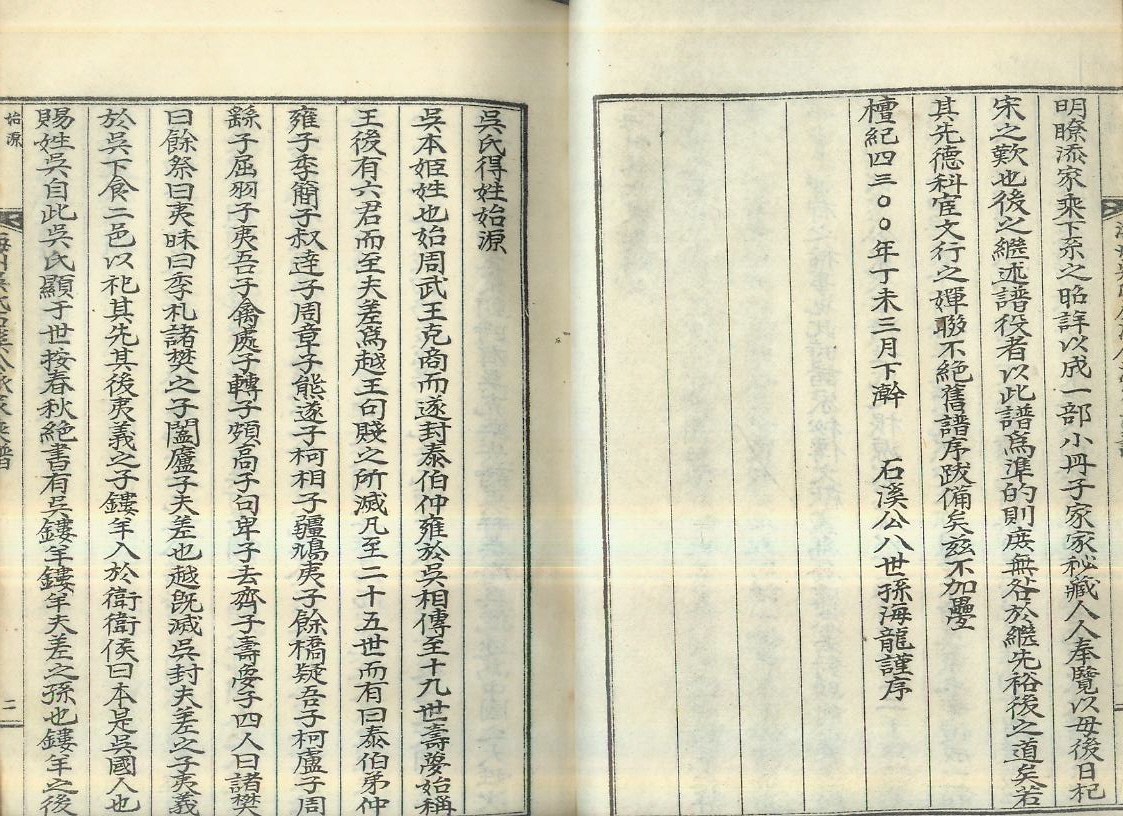 明瞭添家乘下系之昭詳以成一部小丹子家家秘藏人人奉覽以毋後日杞
宋之歎也後之繼述譜役者以此譜爲準的則庶無咎於繼先裕後之道矣若
其先德科宦文行之媈聯不絶舊譜序跋備矣玆不加疊
檀紀四三〇〇年丁未三月下澣 石溪公八世孫海龍謹序
吳氏得姓始源
吳本姬姓也始周武王克商而遂封泰伯仲雍於吳相傳至十九世壽夢始稱
王後有六君而至夫差爲越王句賤之所滅凡至二十五世而有曰泰伯弟仲
雍子季簡子叔達子周章子熊遂子柯相子疆鳩夷子餘橋疑吾子柯盧子周
繇子屈羽子夷吾子禽處子轉子頗高子句卑子去齊子壽夢子四人曰諸樊
曰餘祭曰夷昧曰季札諸樊之子闔廬子夫差也越旣滅吳封夫差之子夷義
於吳下食二邑以祀其先其後夷義之子鏤羊入於衛衛侯曰本是吳國人也
賜姓吳自此吳氏顯于世按春秋絶書有吳鏤羊鏤羊夫差之孫也鏤羊之後
始源
二